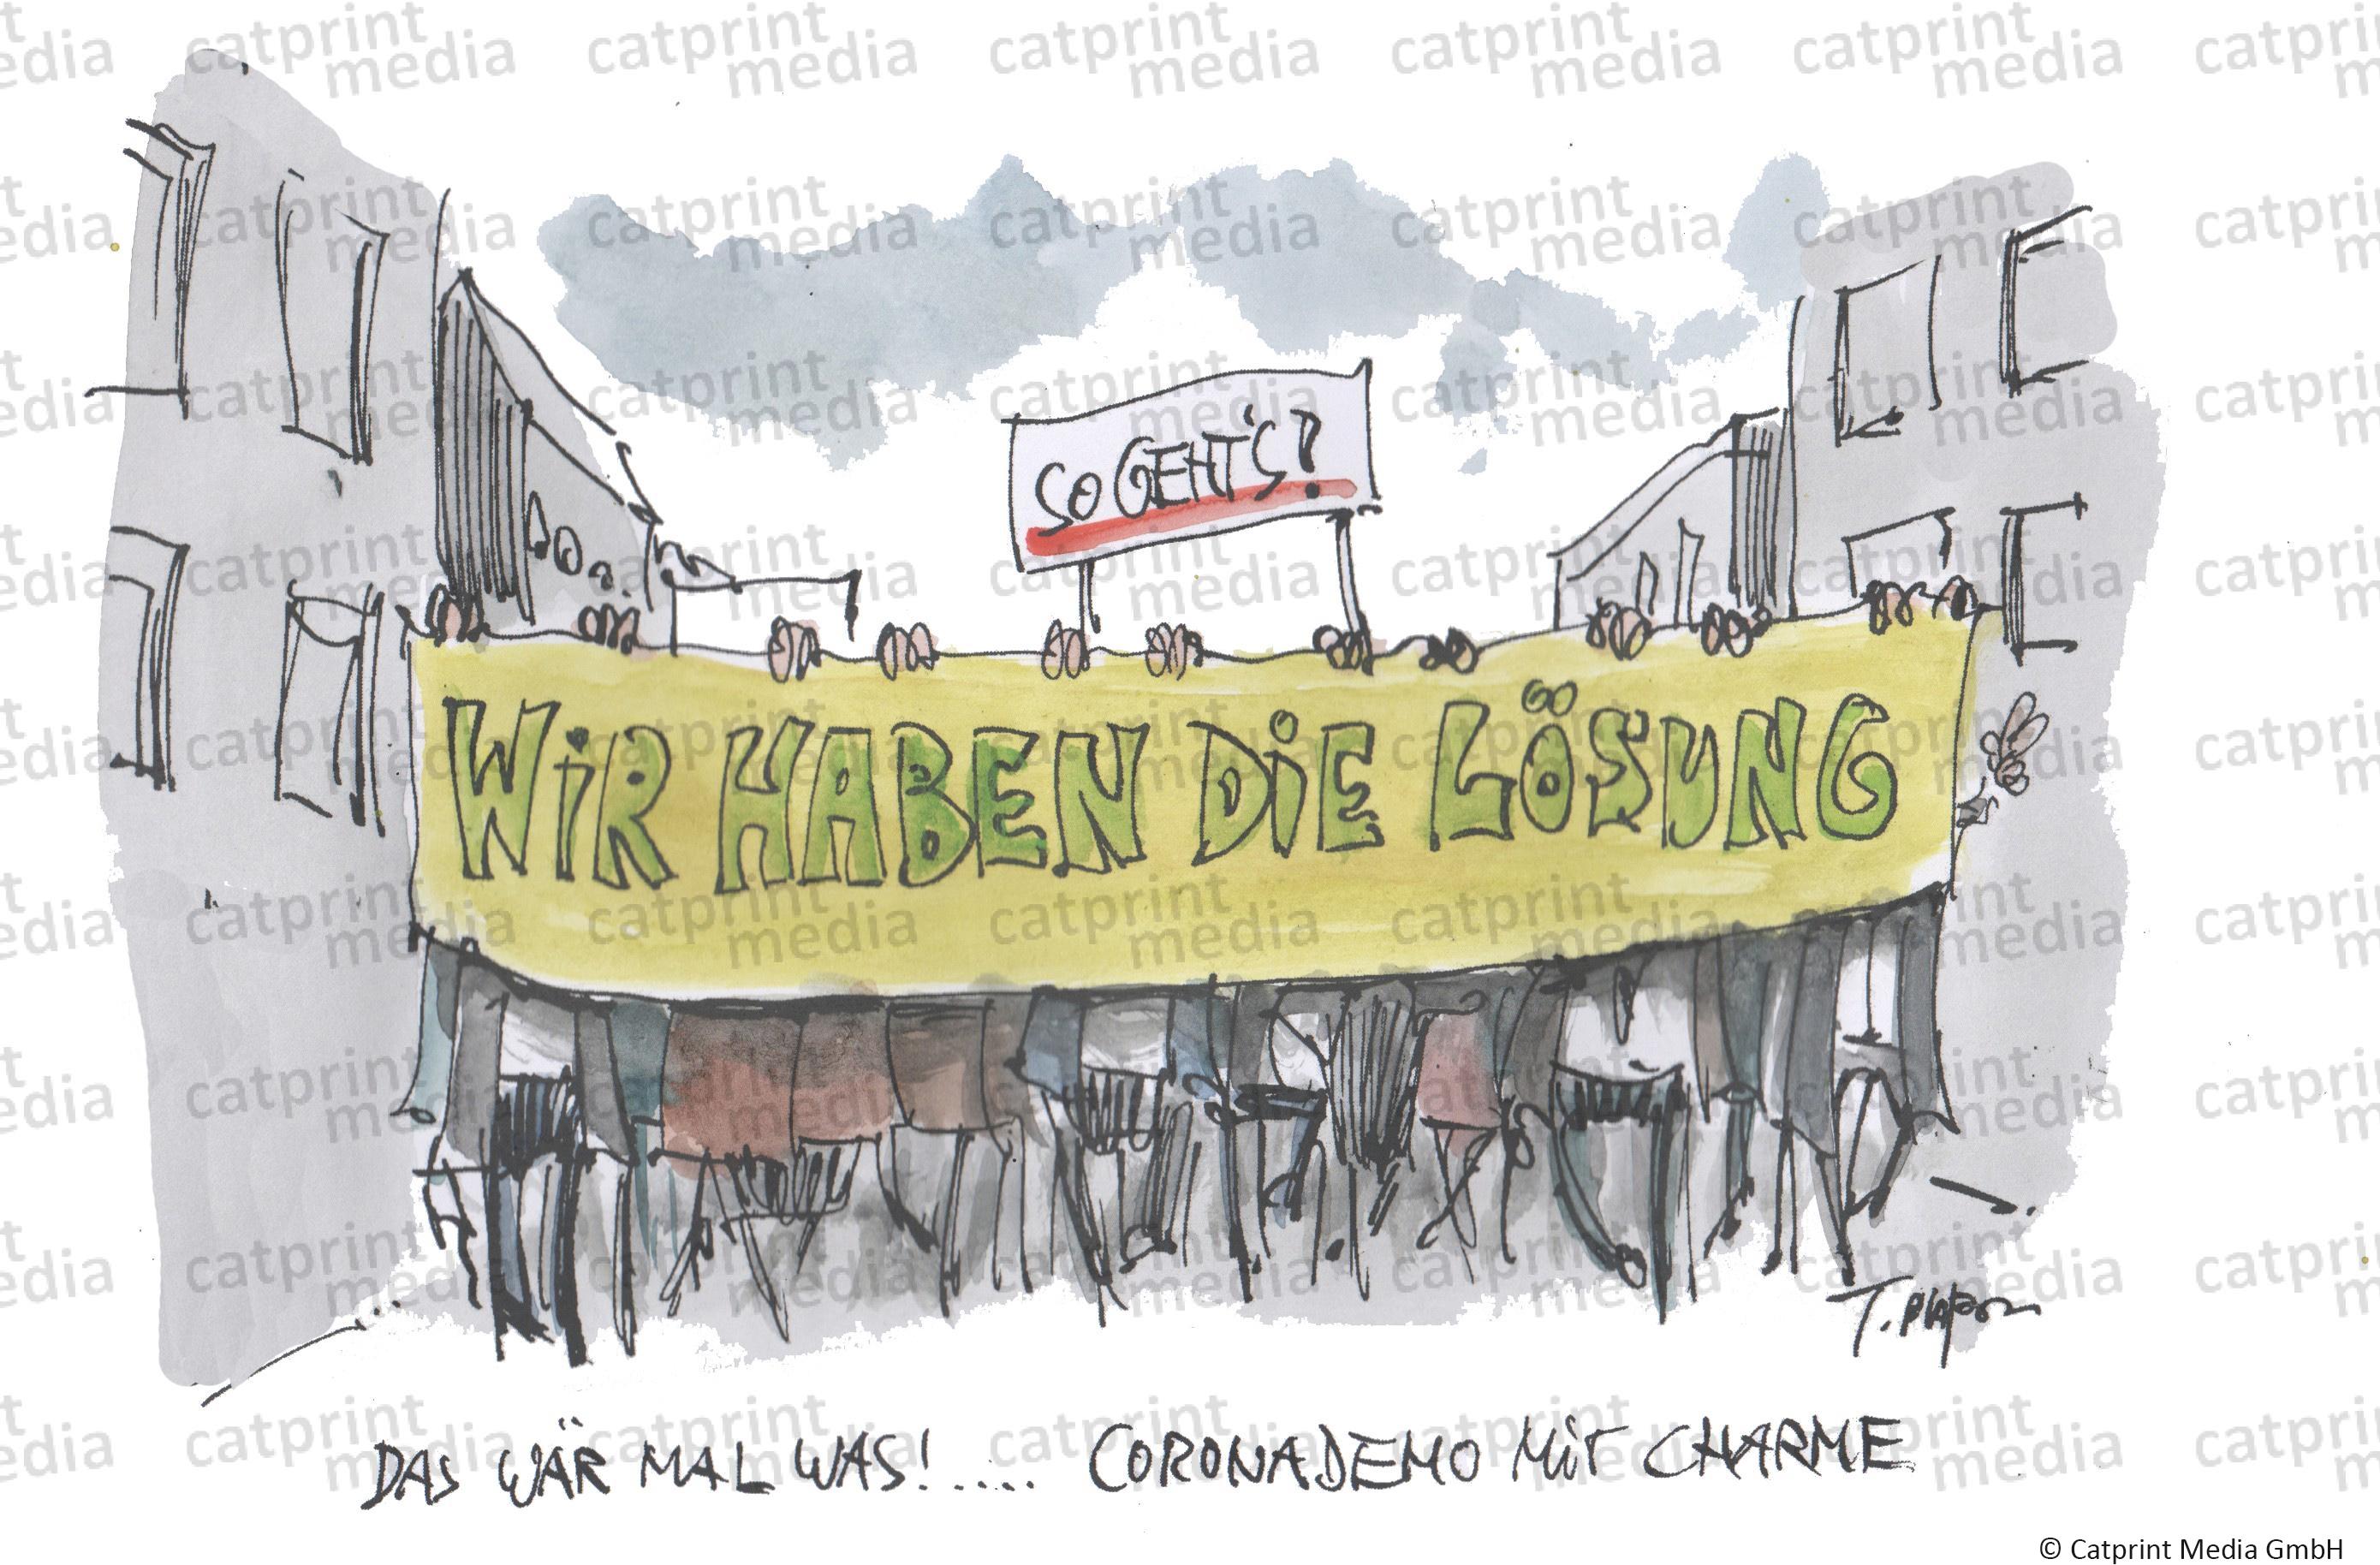 SO GEHT'S!
WIR HABEN DIE LÖSUNG
DAS WÄR MAL WAS!..... CORONADEMO MIT CHARME
© Catprint Media GmbH
catprint media